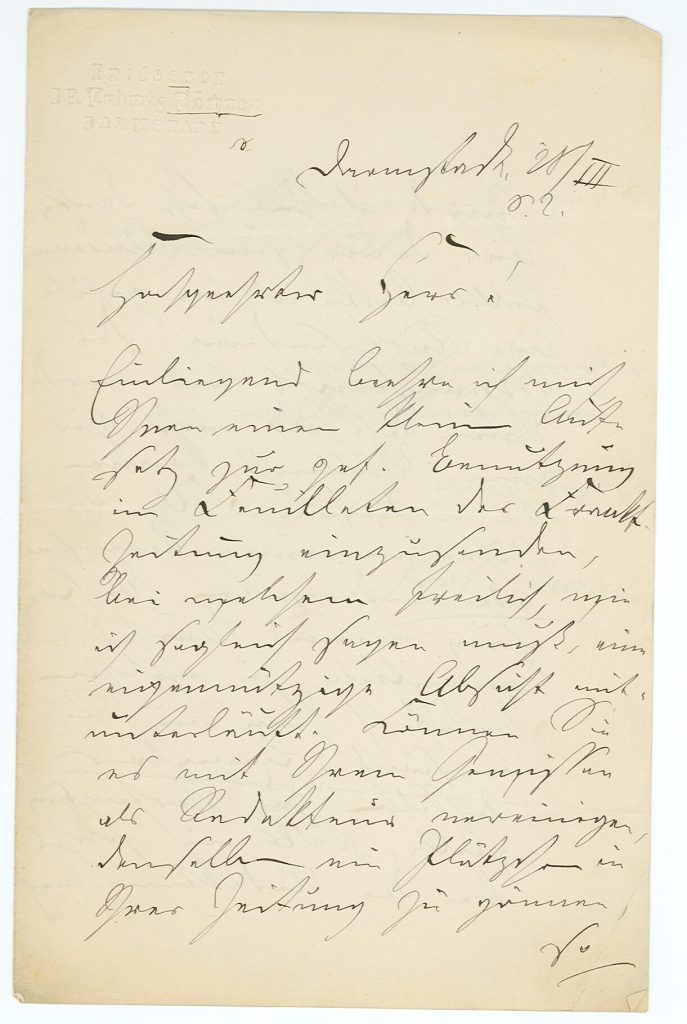 PROFESSOR
Dr. Ludwig Büchner
DARMSTADT
Darmstadt, 28/III
82.
Hochgeehrter Herr!
Einliegend beehre ich mich
Ihnen einen kleinen Auf-
satz zur gef. Benutzung
im Feuilleton der Frankf.
Zeitung einzusenden,
bei welchem freilich, wie
ich sogleich sagen muß, eine
eigennützige Absicht mit-
unterläuft. Können Sie
es mit Ihrem Gewissen
als Redakteur vereinigen,
demselben ein Plätzchen in
Ihrer Zeitung zu gönnen,
so